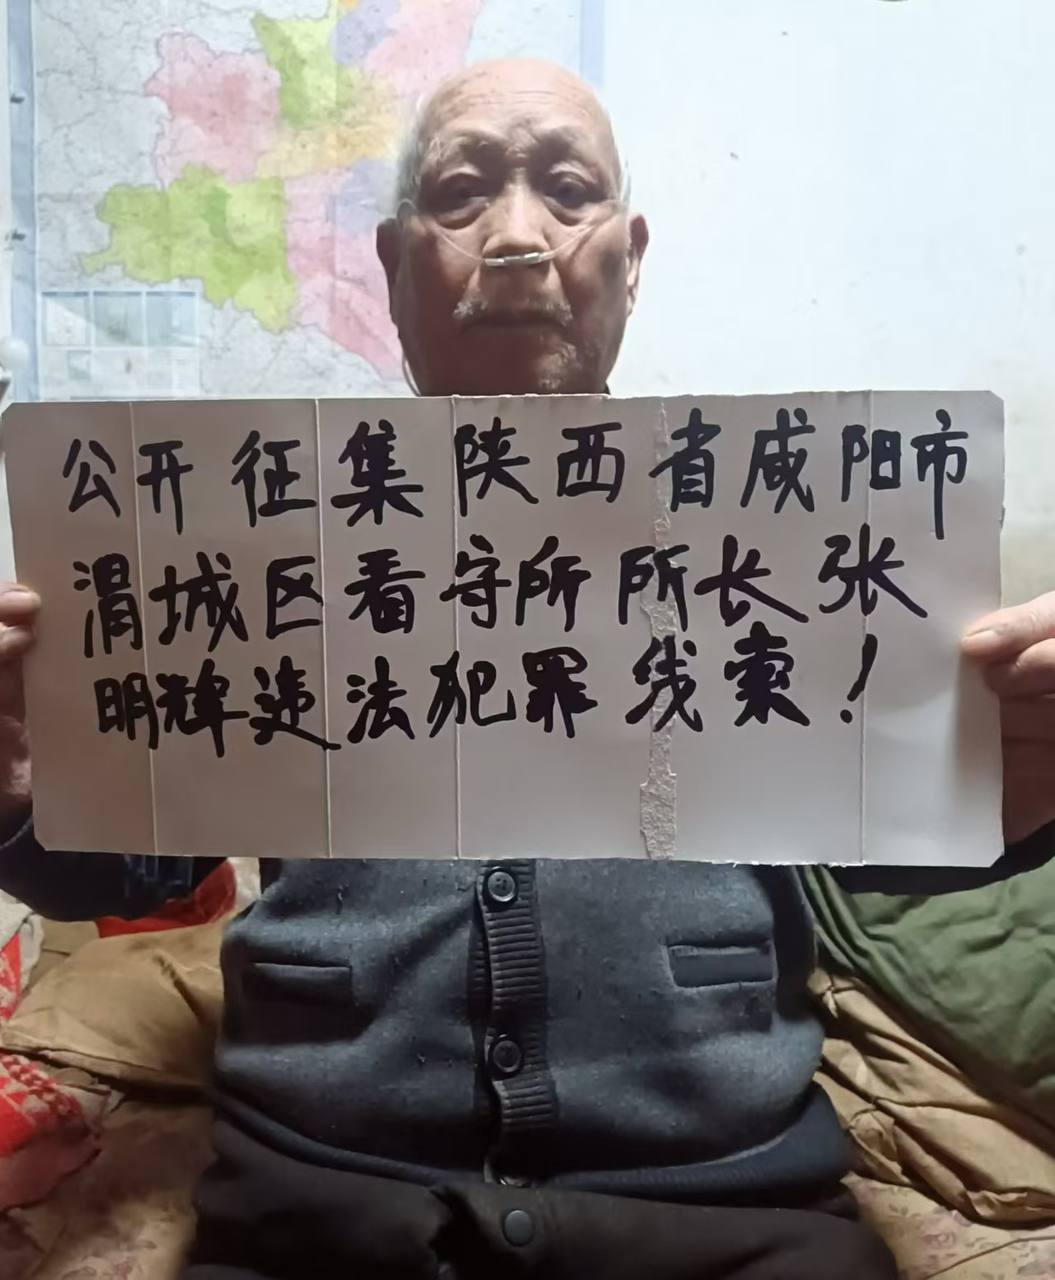 公开征集陕西省咸阳市
渭城区看守所所长张
明辉违法犯罪线索！